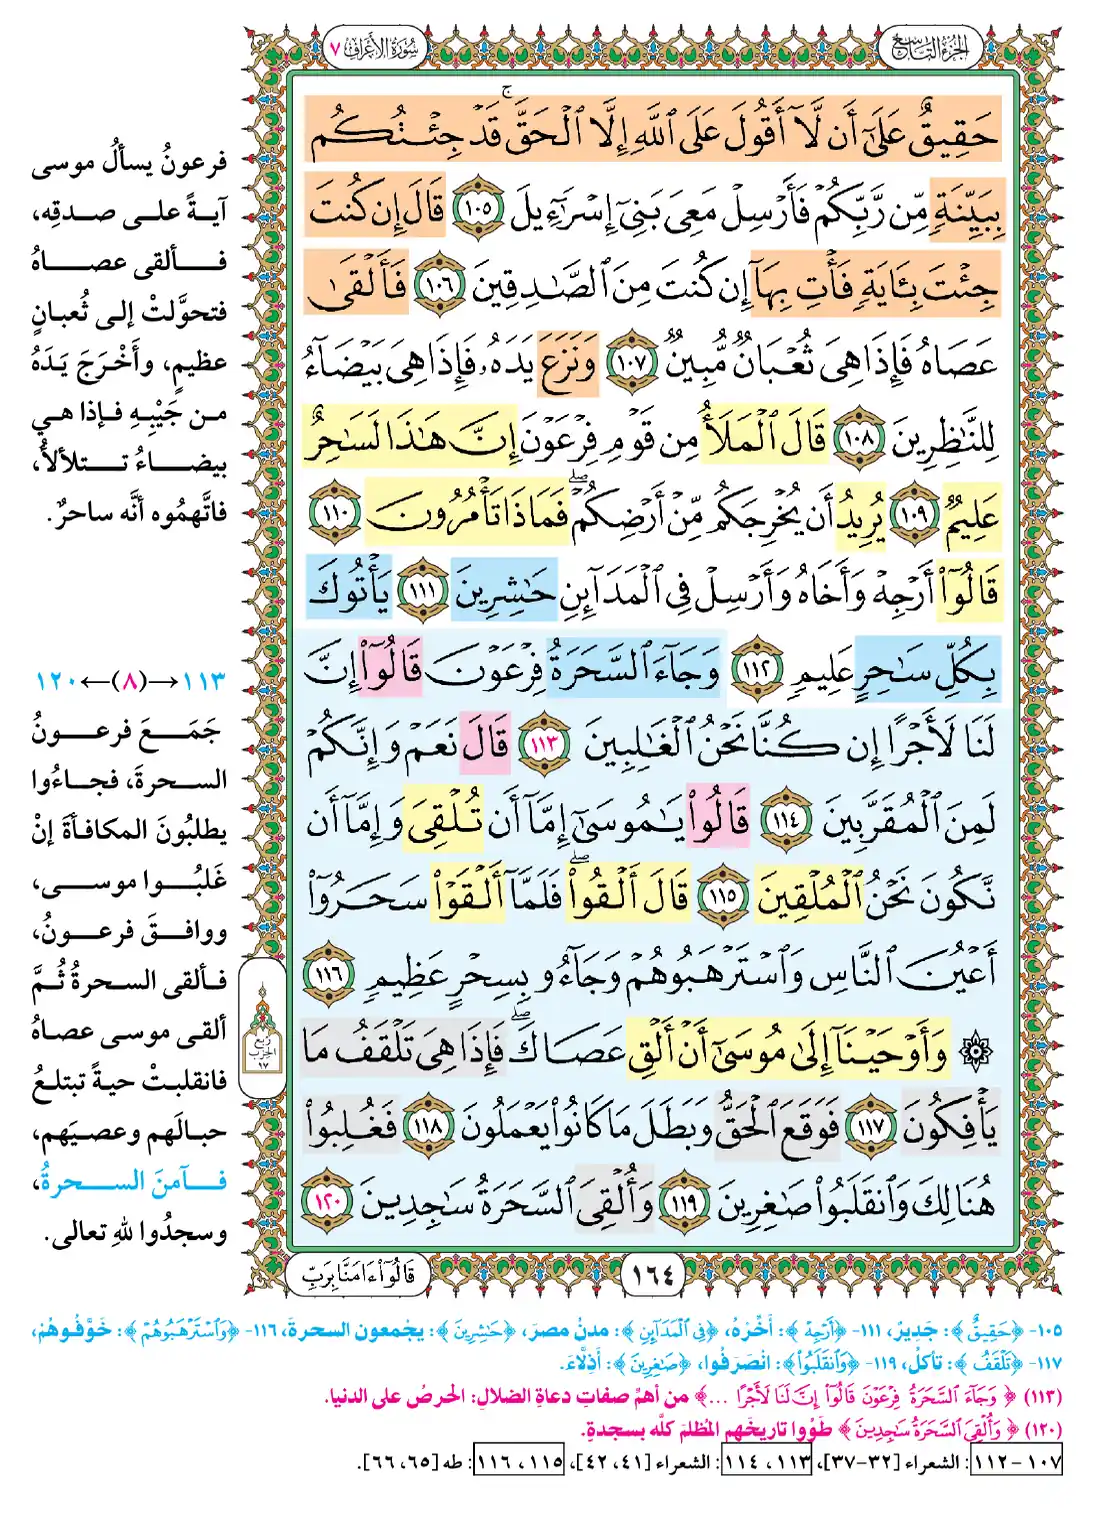 الجزء التاسع
سورة الأعراف ٧
حَقِيقٌ عَلَىٰٓ أَن لَّآ أَقُولَ عَلَى ٱللَّهِ إِلَّا ٱلْحَقَّ ۚ قَدْ جِئْتُكُم
بِبَيِّنَةٍ مِّن رَّبِّكُمْ فَأَرْسِلْ مَعِىَ بَنِىٓ إِسْرَٰٓءِيلَ ١٠٥ قَالَ إِن كُنتَ
جِئْتَ بِـَٔايَةٍ فَأْتِ بِهَآ إِن كُنتَ مِنَ ٱلصَّٰدِقِينَ ١٠٦ فَأَلْقَىٰ
عَصَاهُ فَإِذَا هِىَ ثُعْبَانٌ مُّبِينٌ ١٠٧ وَنَزَعَ يَدَهُۥ فَإِذَا هِىَ بَيْضَآءُ
لِلنَّٰظِرِينَ ١٠٨ قَالَ ٱلْمَلَأُ مِن قَوْمِ فِرْعَوْنَ إِنَّ هَٰذَا لَسَٰحِرٌ
عَلِيمٌ ١٠٩ يُرِيدُ أَن يُخْرِجَكُم مِّنْ أَرْضِكُمْ ۖ فَمَاذَا تَأْمُرُونَ ١١٠
قَالُوٓا۟ أَرْجِهْ وَأَخَاهُ وَأَرْسِلْ فِى ٱلْمَدَآئِنِ حَٰشِرِينَ ١١١ يَأْتُوكَ
بِكُلِّ سَٰحِرٍ عَلِيمٍ ١١٢ وَجَآءَ ٱلسَّحَرَةُ فِرْعَوْنَ قَالُوٓا۟ إِنَّ
لَنَا لَأَجْرًا إِن كُنَّا نَحْنُ ٱلْغَٰلِبِينَ ١١٣ قَالَ نَعَمْ وَإِنَّكُمْ
لَمِنَ ٱلْمُقَرَّبِينَ ١١٤ قَالُوا۟ يَٰمُوسَىٰٓ إِمَّآ أَن تُلْقِىَ وَإِمَّآ أَن
نَّكُونَ نَحْنُ ٱلْمُلْقِينَ ١١٥ قَالَ أَلْقُوا۟ ۖ فَلَمَّآ أَلْقَوْا۟ سَحَرُوٓا۟
أَعْيُنَ ٱلنَّاسِ وَٱسْتَرْهَبُوهُمْ وَجَآءُو بِسِحْرٍ عَظِيمٍ ١١٦
۞ وَأَوْحَيْنَآ إِلَىٰ مُوسَىٰٓ أَنْ أَلْقِ عَصَاكَ ۖ فَإِذَا هِىَ تَلْقَفُ مَا
يَأْفِكُونَ ١١٧ فَوَقَعَ ٱلْحَقُّ وَبَطَلَ مَا كَانُوا۟ يَعْمَلُونَ ١١٨ فَغُلِبُوا۟
هُنَالِكَ وَٱنقَلَبُوا۟ صَٰغِرِينَ ١١٩ وَأُلْقِىَ ٱلسَّحَرَةُ سَٰجِدِينَ ١٢٠
١٦٤
قَالُوٓا۟ ءَامَنَّا بِرَبِّ
فرعونُ يسألُ موسى
آيةً على صدقِه،
فألقى عصاهُ
فتحوَّلتْ إلى ثُعبانٍ
عظيمٍ، وأَخْرَجَ يَدَهُ
من جَيْبِهِ فإذا هي
بيضاءُ تتلألأُ،
فاتَّهمُوه أنَّه ساحرٌ.
١١٣→(٨)←١٢٠
جَمَعَ فرعونُ
السحرةَ، فجاءُوا
يطلبُونَ المكافأةَ إنْ
غَلبُوا موسى،
ووافقَ فرعونُ،
فألقى السحرةُ ثُمَّ
ألقى موسى عصاهُ
فانقلبتْ حيةً تبتلعُ
حبالَهم وعصيَهم،
فآمنَ السحرةُ،
وسجدُوا للهِ تعالى.
ربع
الحزب
١٧
١٠٥- ﴿حَقِيقٌ﴾: جَدِيرٌ، ١١١- ﴿أَرْجِهْ﴾: أَخِّرْهُ، ﴿فِي ٱلْمَدَآئِنِ﴾: مدنُ مصرَ، ﴿حَٰشِرِينَ﴾: يجمعون السحرةَ، ١١٦- ﴿وَٱسْتَرْهَبُوهُمْ﴾: خَوَّفُوهُمْ،
١١٧- ﴿تَلْقَفُ﴾: تأكلُ، ١١٩- ﴿وَٱنقَلَبُوا۟﴾: انْصَرَفُوا، ﴿صَٰغِرِينَ﴾: أَذِلَّاءَ.
(١١٣) ﴿وَجَآءَ ٱلسَّحَرَةُ فِرْعَوْنَ قَالُوٓا۟ إِنَّ لَنَا لَأَجْرًا ...﴾ من أهمِّ صفاتِ دعاةِ الضلالِ: الحرصُ على الدنيا.
(١٢٠) ﴿وَأُلْقِىَ ٱلسَّحَرَةُ سَٰجِدِينَ﴾ طَوُوا تاريخَهم المُظلمَ كلَّه بسجدةٍ.
١٠٧ – ١١٢: الشعراء [٣٢-٣٧]، ١١٣، ١١٤: الشعراء [٤١، ٤٢]، ١١٥، ١١٦: طه [٦٥، ٦٦].